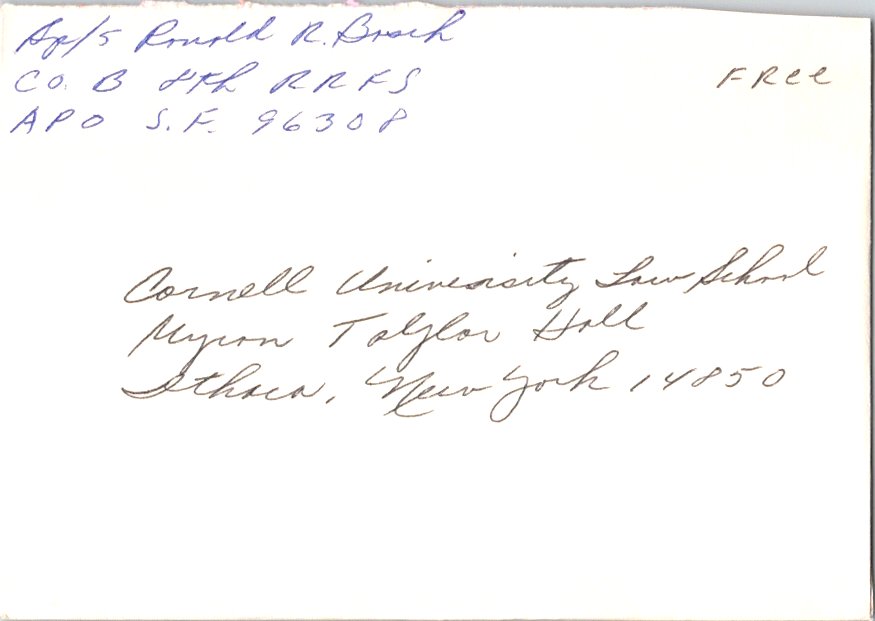 Sp/5 Ronald R. Bosch
CO. B 8th RRFS
APO S.F. 96308
FREE
Cornell University Law School
Myron Talylor Hall
Ithaca, New York 14850